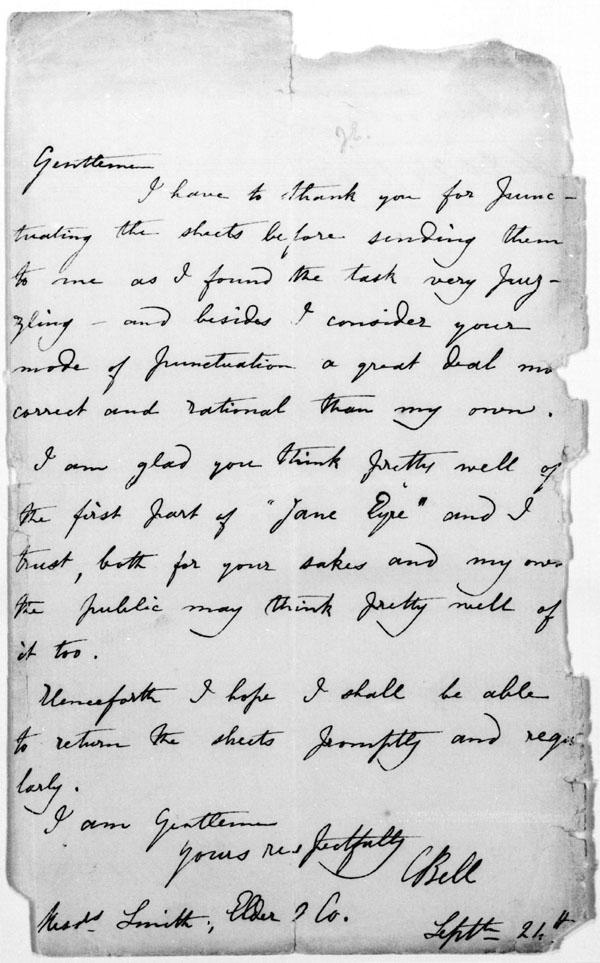 Gentlemen
I have to thank you for punc-
tuating the sheets before sending them
to me as I found the task very puz-
zling - and besides I consider your
mode of punctuation a great deal mo
correct and rational than my own.
I am glad you think pretty well of
the first part of "Jane Eyre" and I
trust, both for your sakes and my own
the public may think pretty well of
it too.
Henceforth I hope I shall be able
to return the sheets promptly and regu
larly.
I am Gentlemen
yours respectfully
CBell
Messrs Smith, Elder & Co.
Septbr 24th